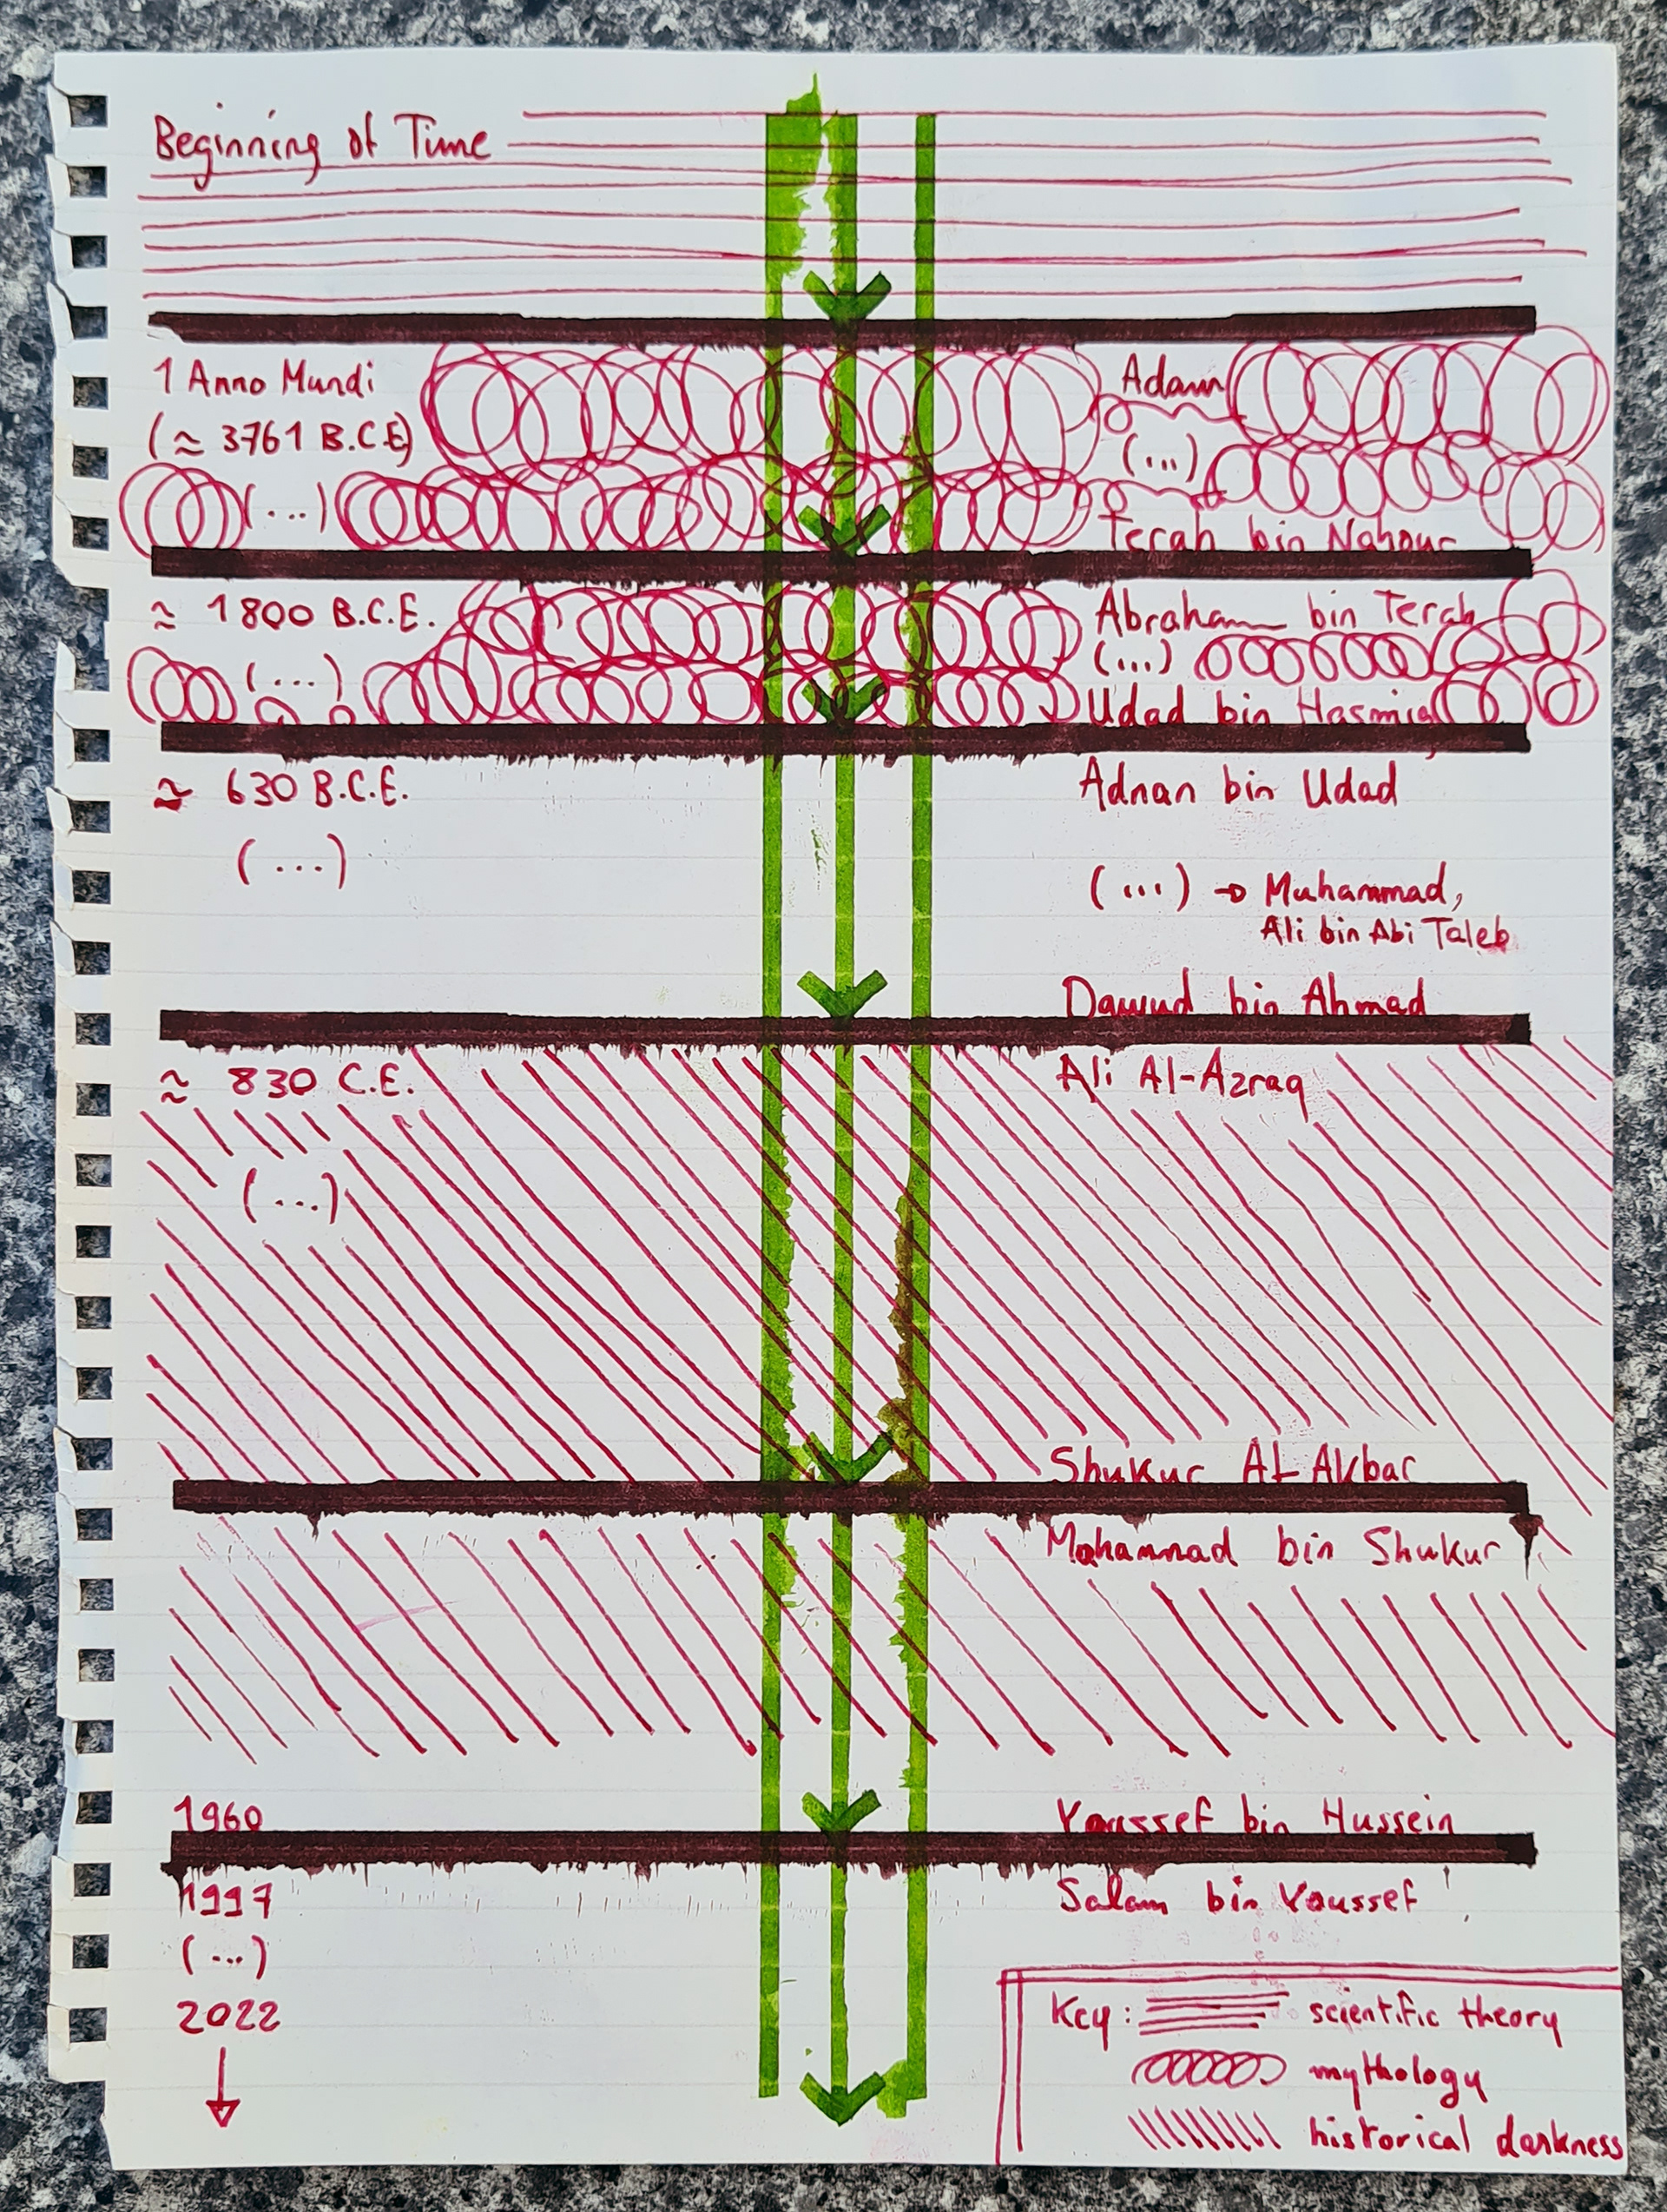 Beginning of Time
1 Anno Mundi
Adam
(≈ 3761 B.C.E)
(...)
(...)
Terah bin Nahour
≈ 1800 B.C.E.
Abraham bin Terah
(...)
(...)
Udad bin Hasmia
≈ 630 B.C.E.
Adnan bin Udad
(...)
(...) → Muhammad,
Ali bin Abi Taleb
Dawud bin Ahmad
≈ 830 C.E.
Ali Al-Azraq
(...)
Shukur Al-Akbar
Mohammad bin Shukur
1960
Youssef bin Hussein
1997
Salam bin Youssef
(...)
2022
Key: scientific theory
mythology
historical darkness